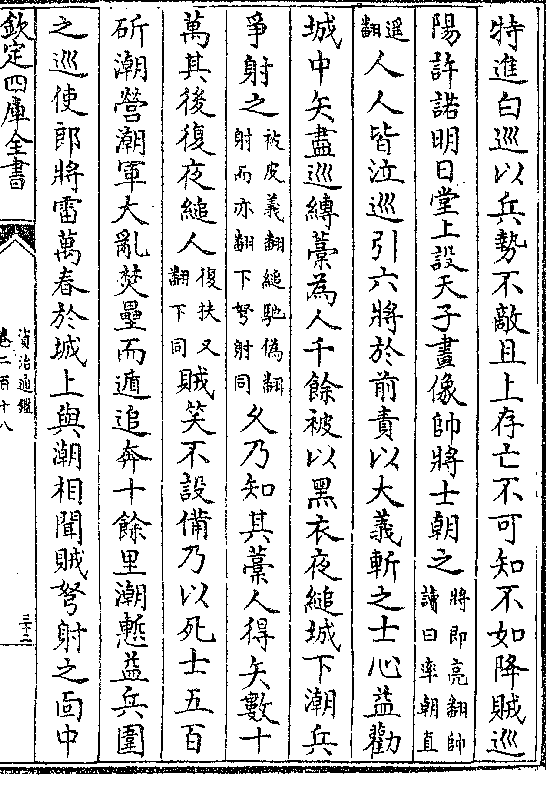 特進白巡以兵勢不敵且上存亡不可知不如降賊巡
陽許諾明日堂上設天子畫像帥將士朝之將即亮翻帥讀曰率朝直
遥翻人人皆泣巡引六將於前責以大義斬之士心益勸
城中矢盡巡縛藁為人千餘被以黑衣夜縋城下潮兵
爭射之被皮義翻縋馳偽翻射而亦翻下弩射同久乃知其藁人得矢數十
萬其後復夜縋人復扶又翻下同賊笑不設備乃以死士五百
斫潮營潮軍大亂焚壘而遁追奔十餘里潮慙益兵圍
之巡使郎將雷萬春於城上與潮相聞賊弩射之面中
欽定四庫全書
資治通鑑
卷二百十八